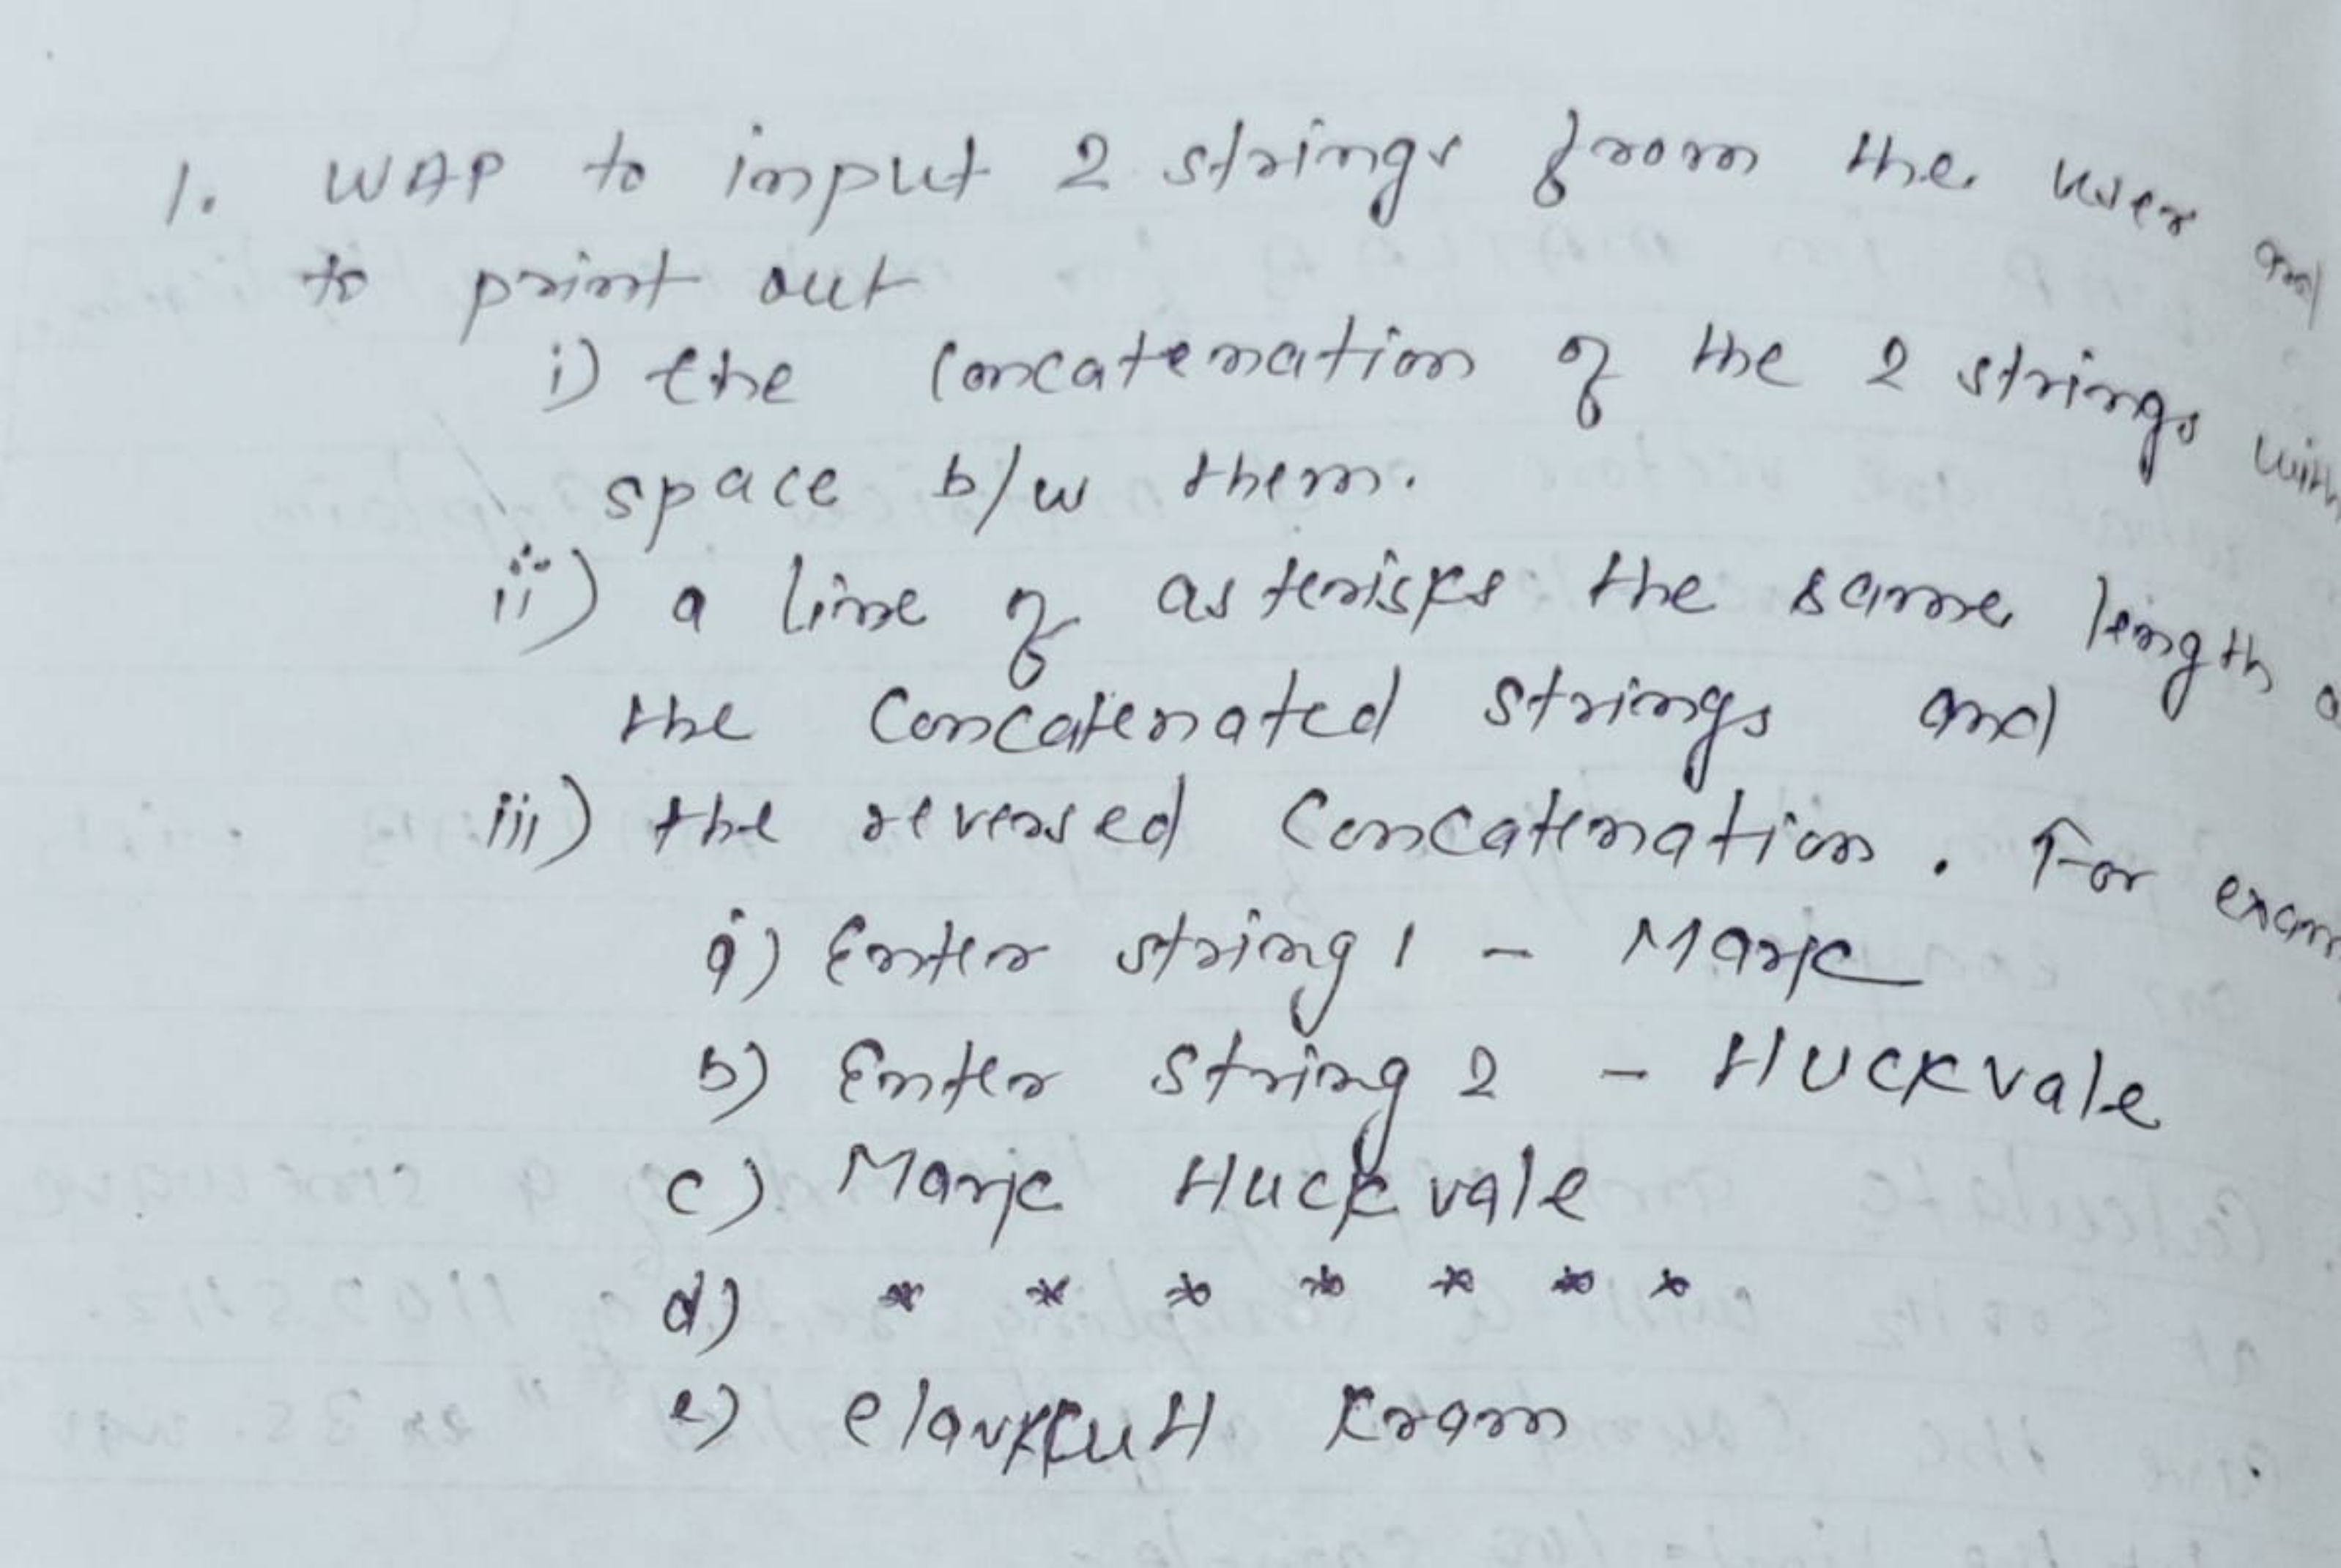 1. WAP to input 2 strings from the user and
to print out
i) the concatenation of the 2 strings with
space b/w them.
ii) a line of asterisks the same length a
the concatenated strings and
iii) the reversed concatenation. For exam
a) Enter string 1 - Mark
b) Enter string 2 - Huckvale
c) Mark Huckvale
d) * * * * * * *
e) elavkcuH kram